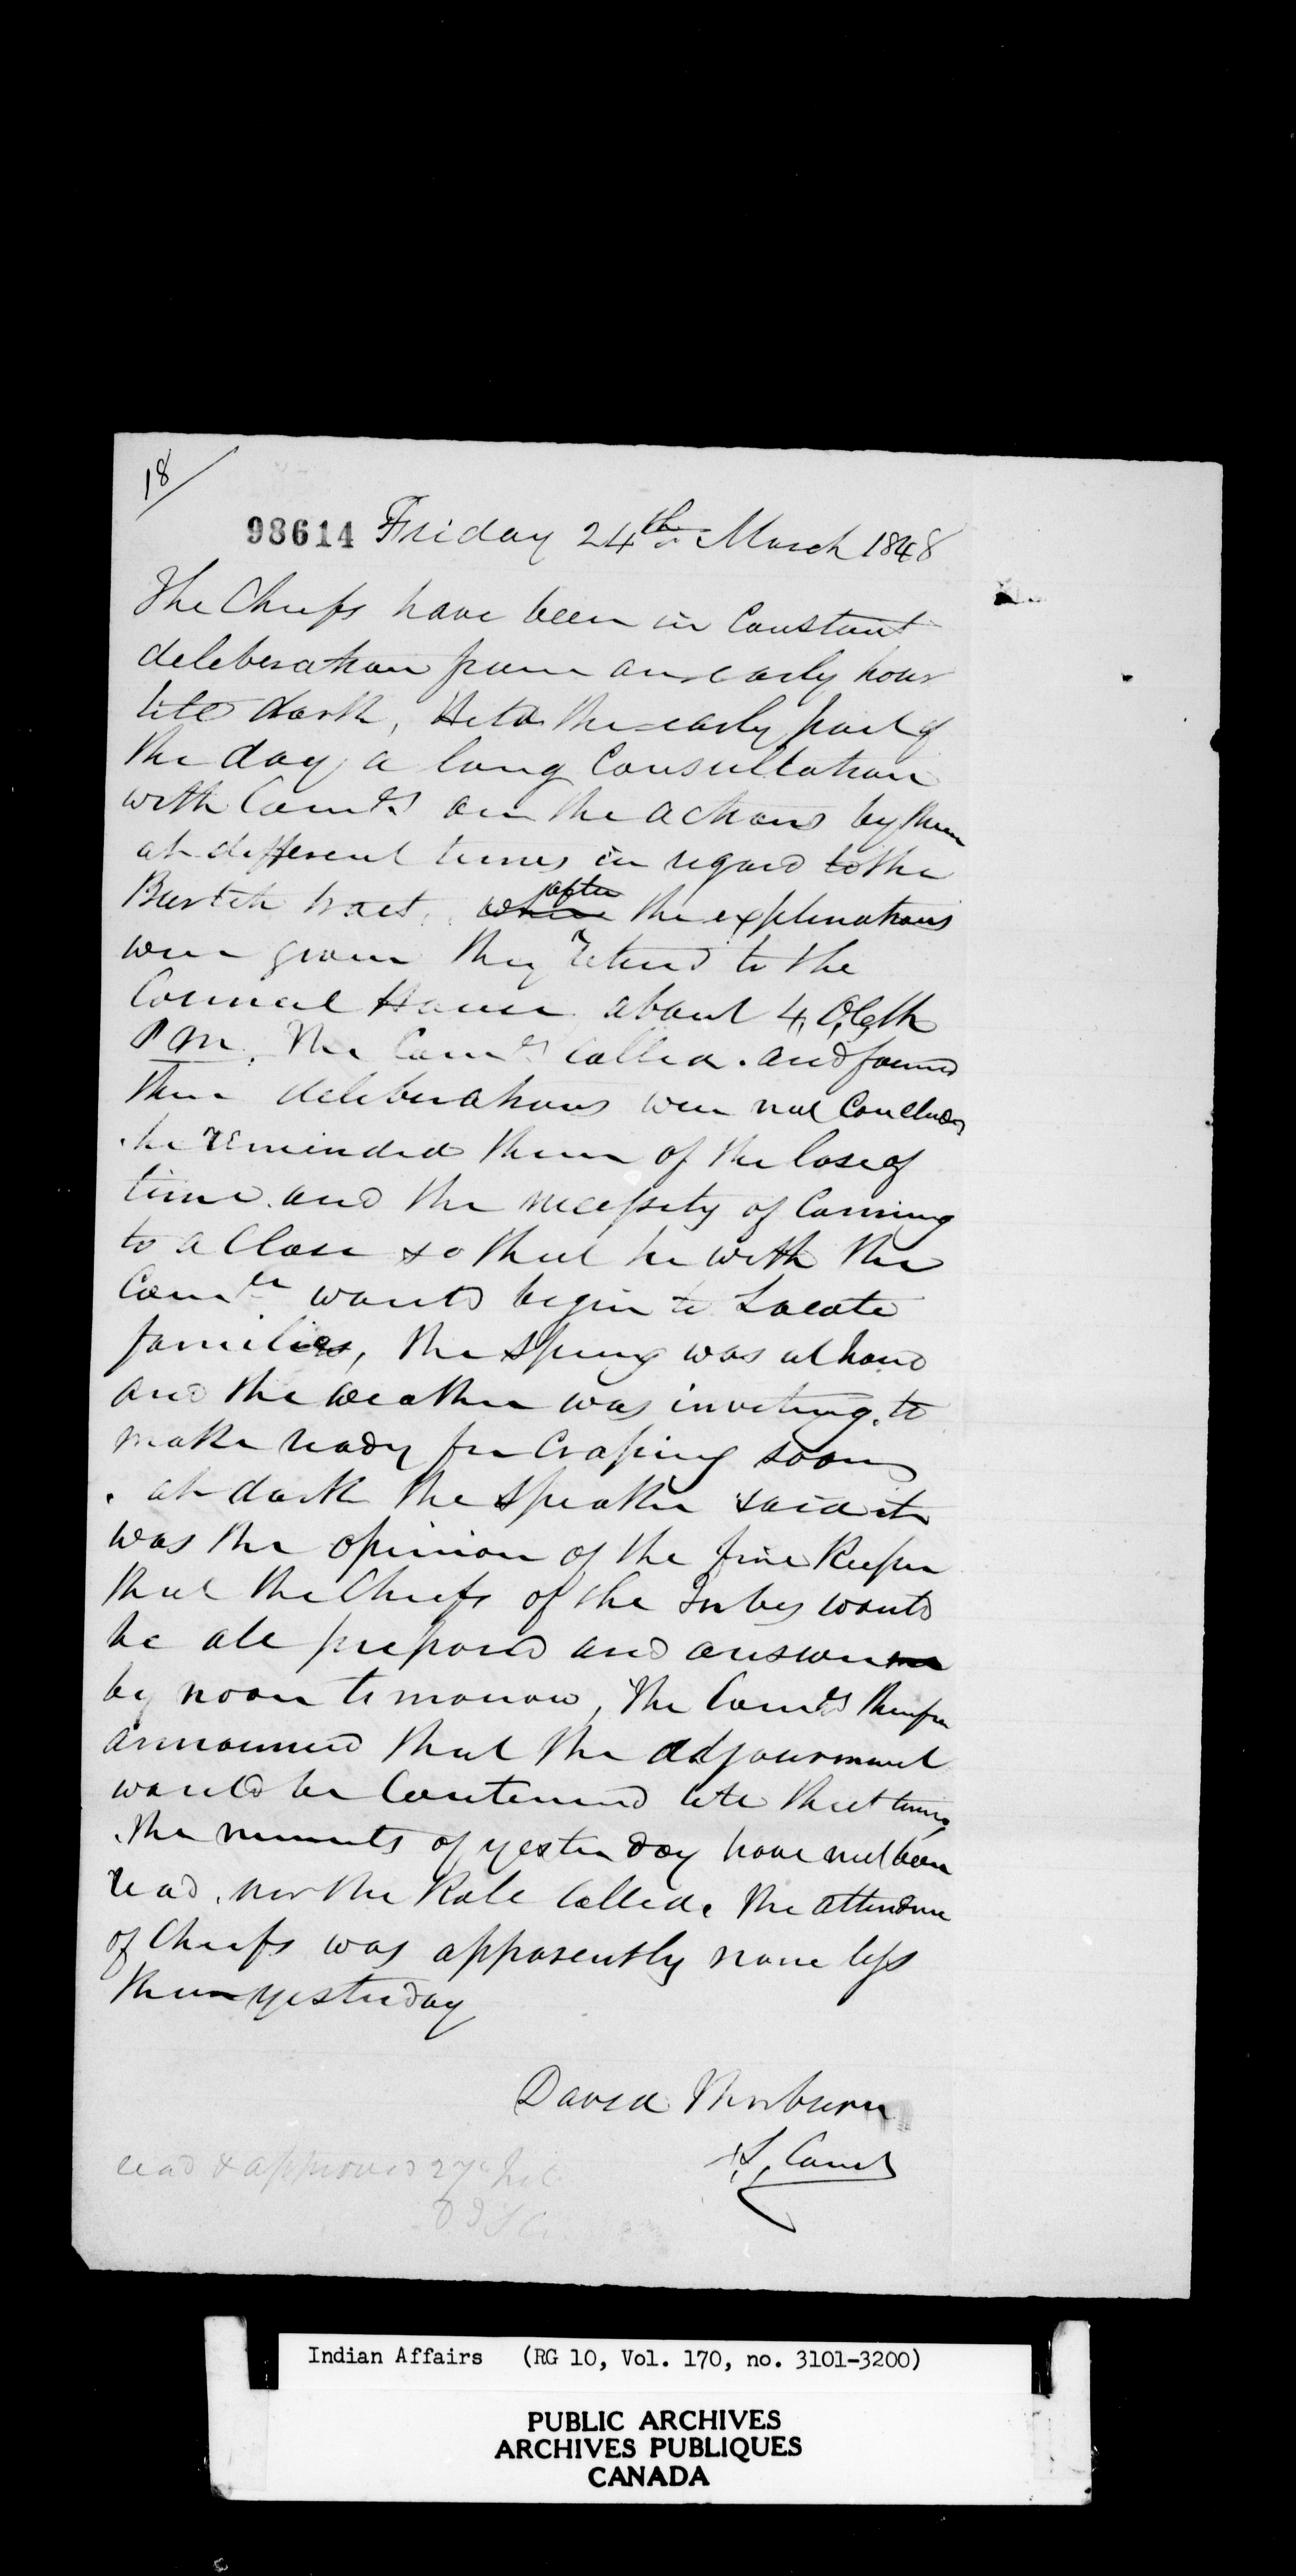 18/
98614 Friday 24th March 1848
The Chiefs have been in Constant
deleberation from an early hour
till dark, Held the early part of
the day a long Consultation
with Comrs on the actions by them
at different times in regard to the
Burtch tract. where after the explanations
were given they retired to the
Council House about 4, O,Clk
P M. The Comrs called. and found
their deliberations were not Concluded
. he reminded them of the lose of
time and the necessity of Coming
to a Close so that he with the
Comtee would begin to Locate
families, the Spring was at hand
and the weather was inviting. to
make ready for Croping soon
. at dark the Speaker said it
was the opinion of the fire Keeper
that the Chiefs of the Tribes would
be all prepared and answer
by noon tomorrow, The Comrs therefore
announced that the adjournment
would be Continued till that time,
. The minuets of yesterday have not been
read, nor the Role Called. the attendance
of Chiefs was apparently none less
than yesterday
David Thorburn
S, Comr
read & approved 27th
Indian Affairs (RG 10, Vol. 170, no. 3101-3200)
PUBLIC ARCHIVES
ARCHIVES PUBLIQUES
CANADA